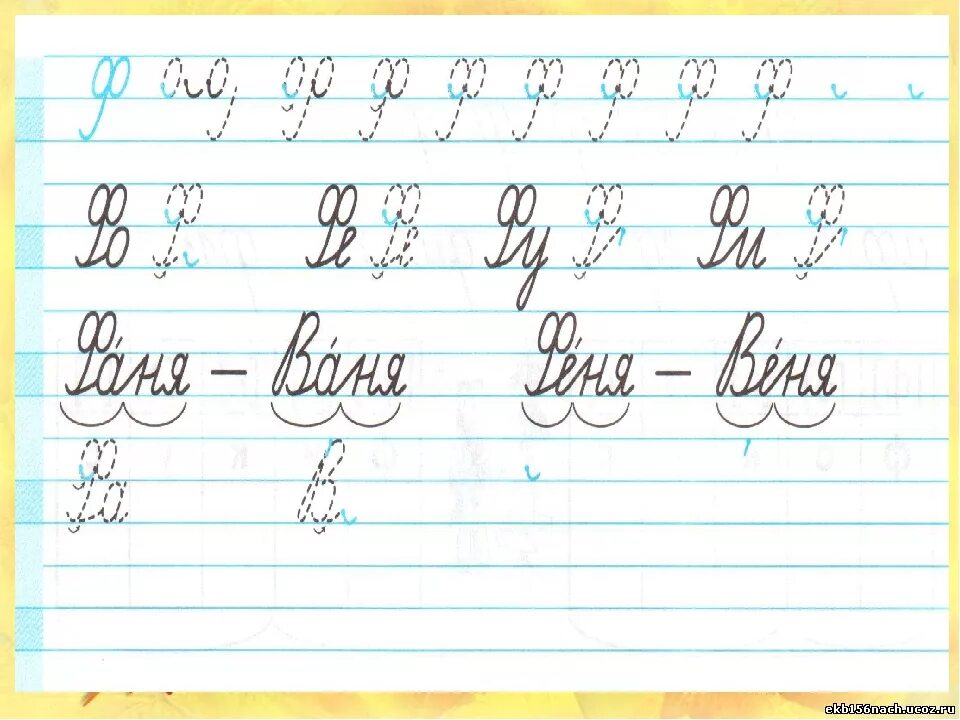 Ф Ф Ф Ф Ф Ф Ф
Фо Ф Фе Фе Фу Ф Фи Ф
Фа́ня — Ва́ня Фе́ня — Ве́ня
Фа В
ekb156nach.ucoz.ru